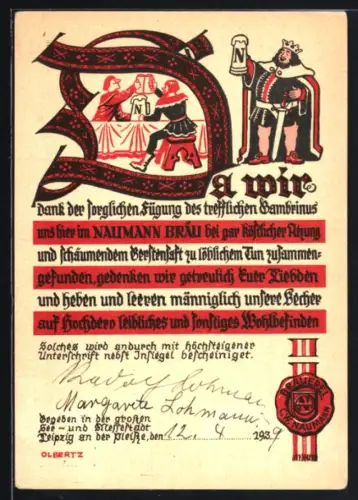 Da wir
dank der sorglichen Fügung des trefflichen Gambrinus
uns hier im NAUMANN BRÄU bei gar köstlicher Atzung
und schäumendem Gerstensaft zu löblichem Tun zusammen-
gefunden, gedenken wir getreulich Euer Liebden
und heben und leeren männiglich unsere Becher
auf Hochdero leibliches und sonstiges Wohlbefinden
Solches wird andurch mit höchsteigener
Unterschrift nebst Insiegel bescheiniget.
Rudolf Lohmann
Margarete Lohmann
Gegeben in der großen
See- und Messestadt
Leipzig an der Pleiße, den 12. 4. 1939
OLBERTZ
N
N
BRAUEREI
C.W. NAUMANN